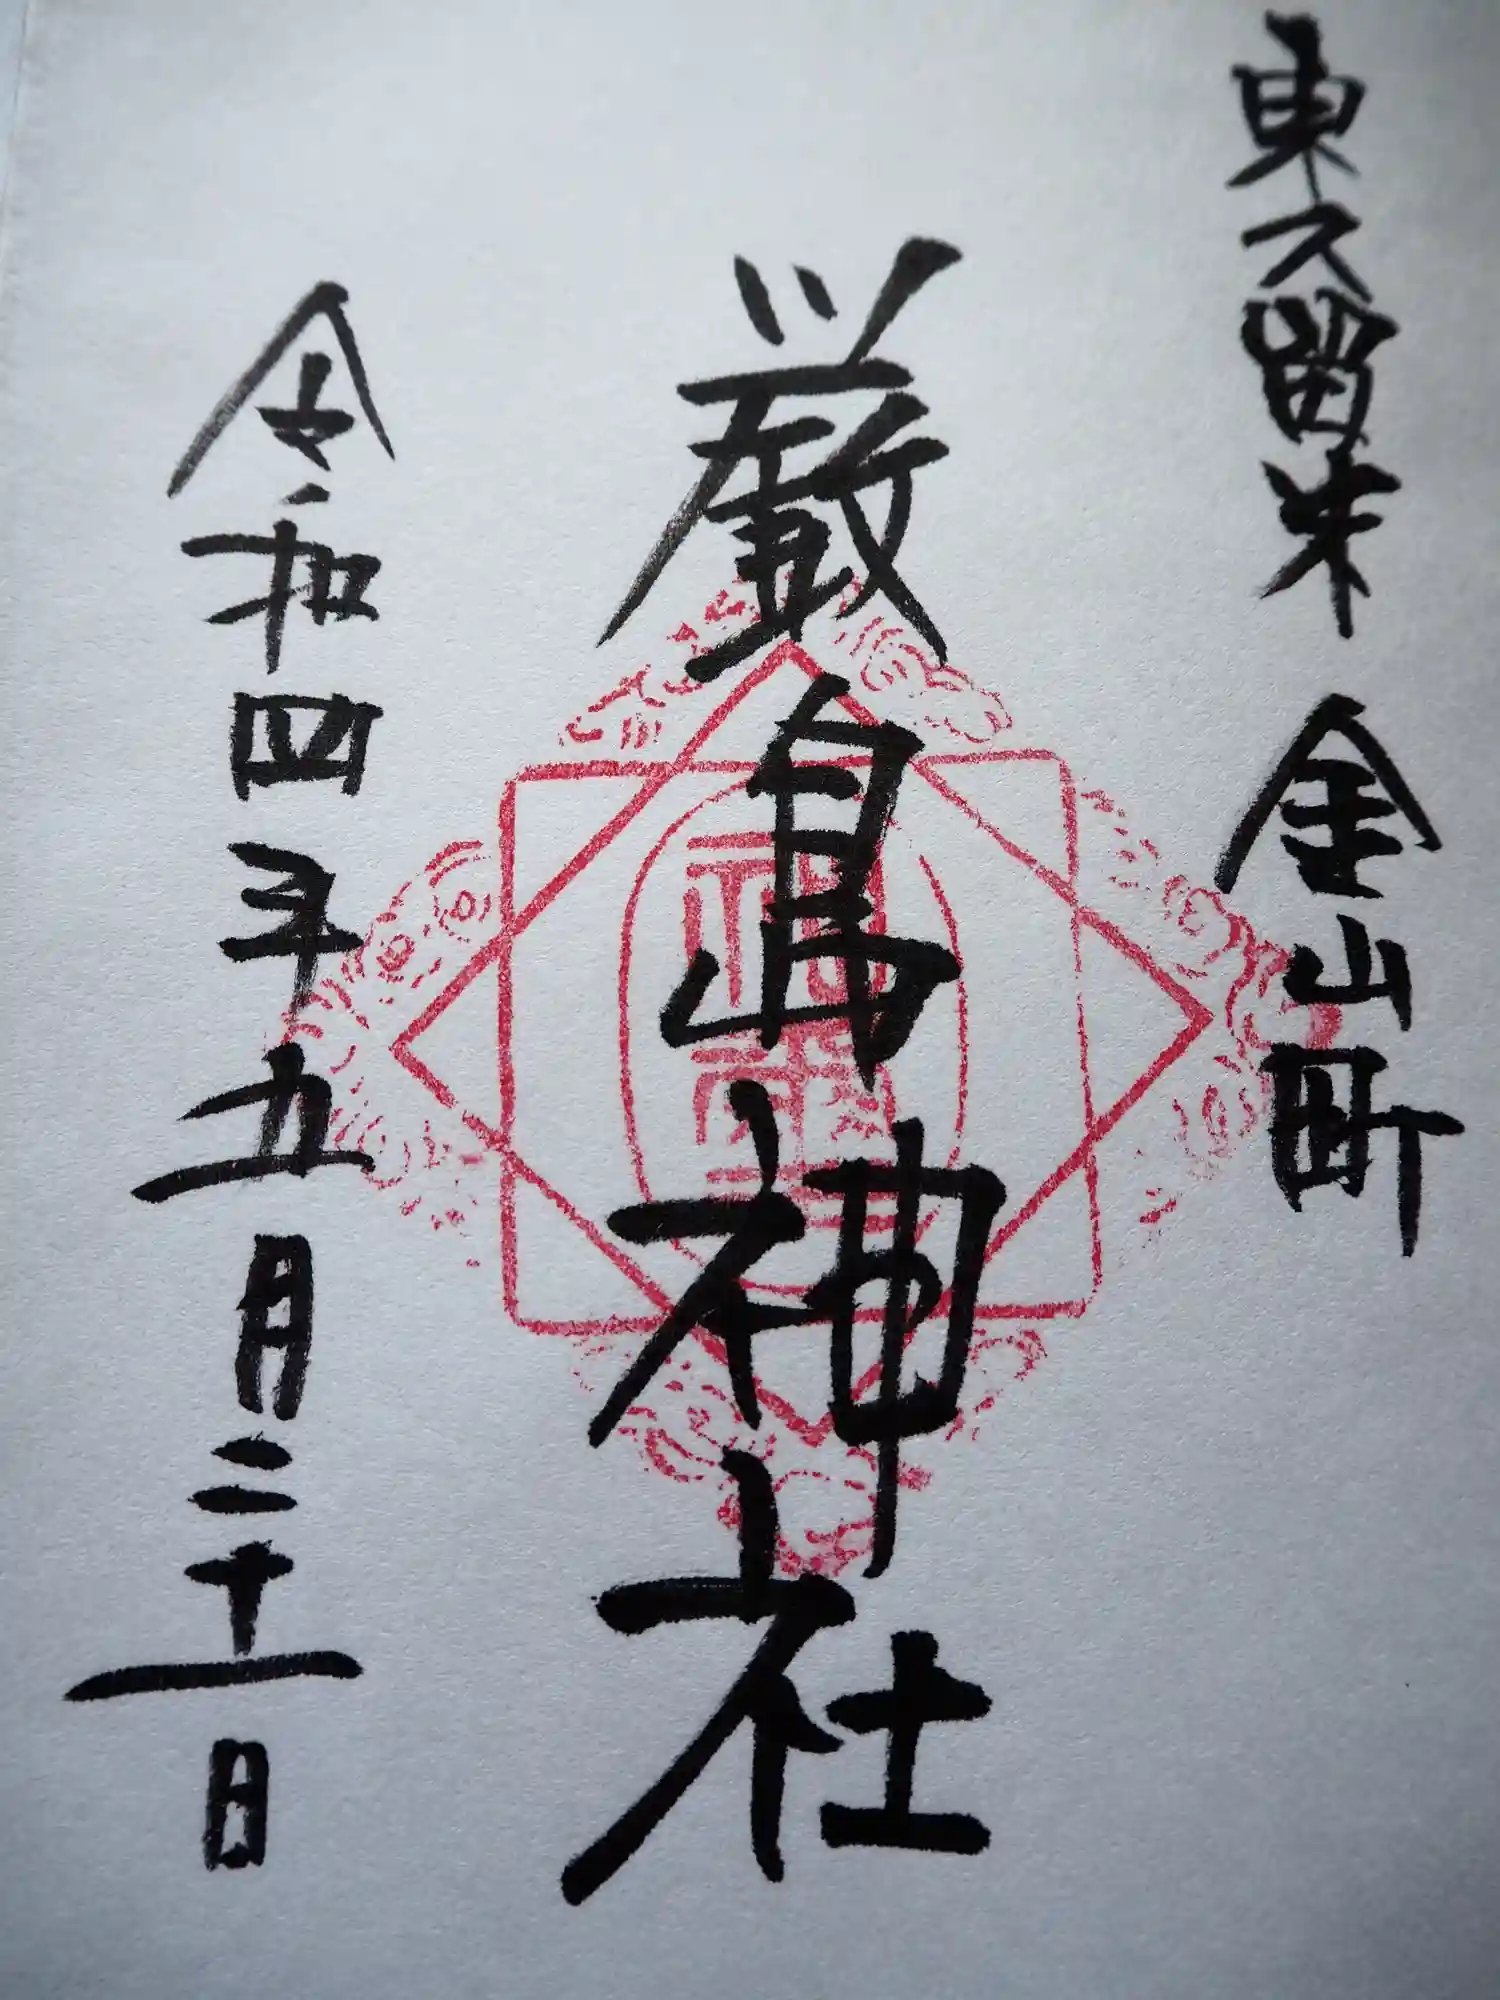 東久留米 金山町
厳島神社
令和四年五月三十一日